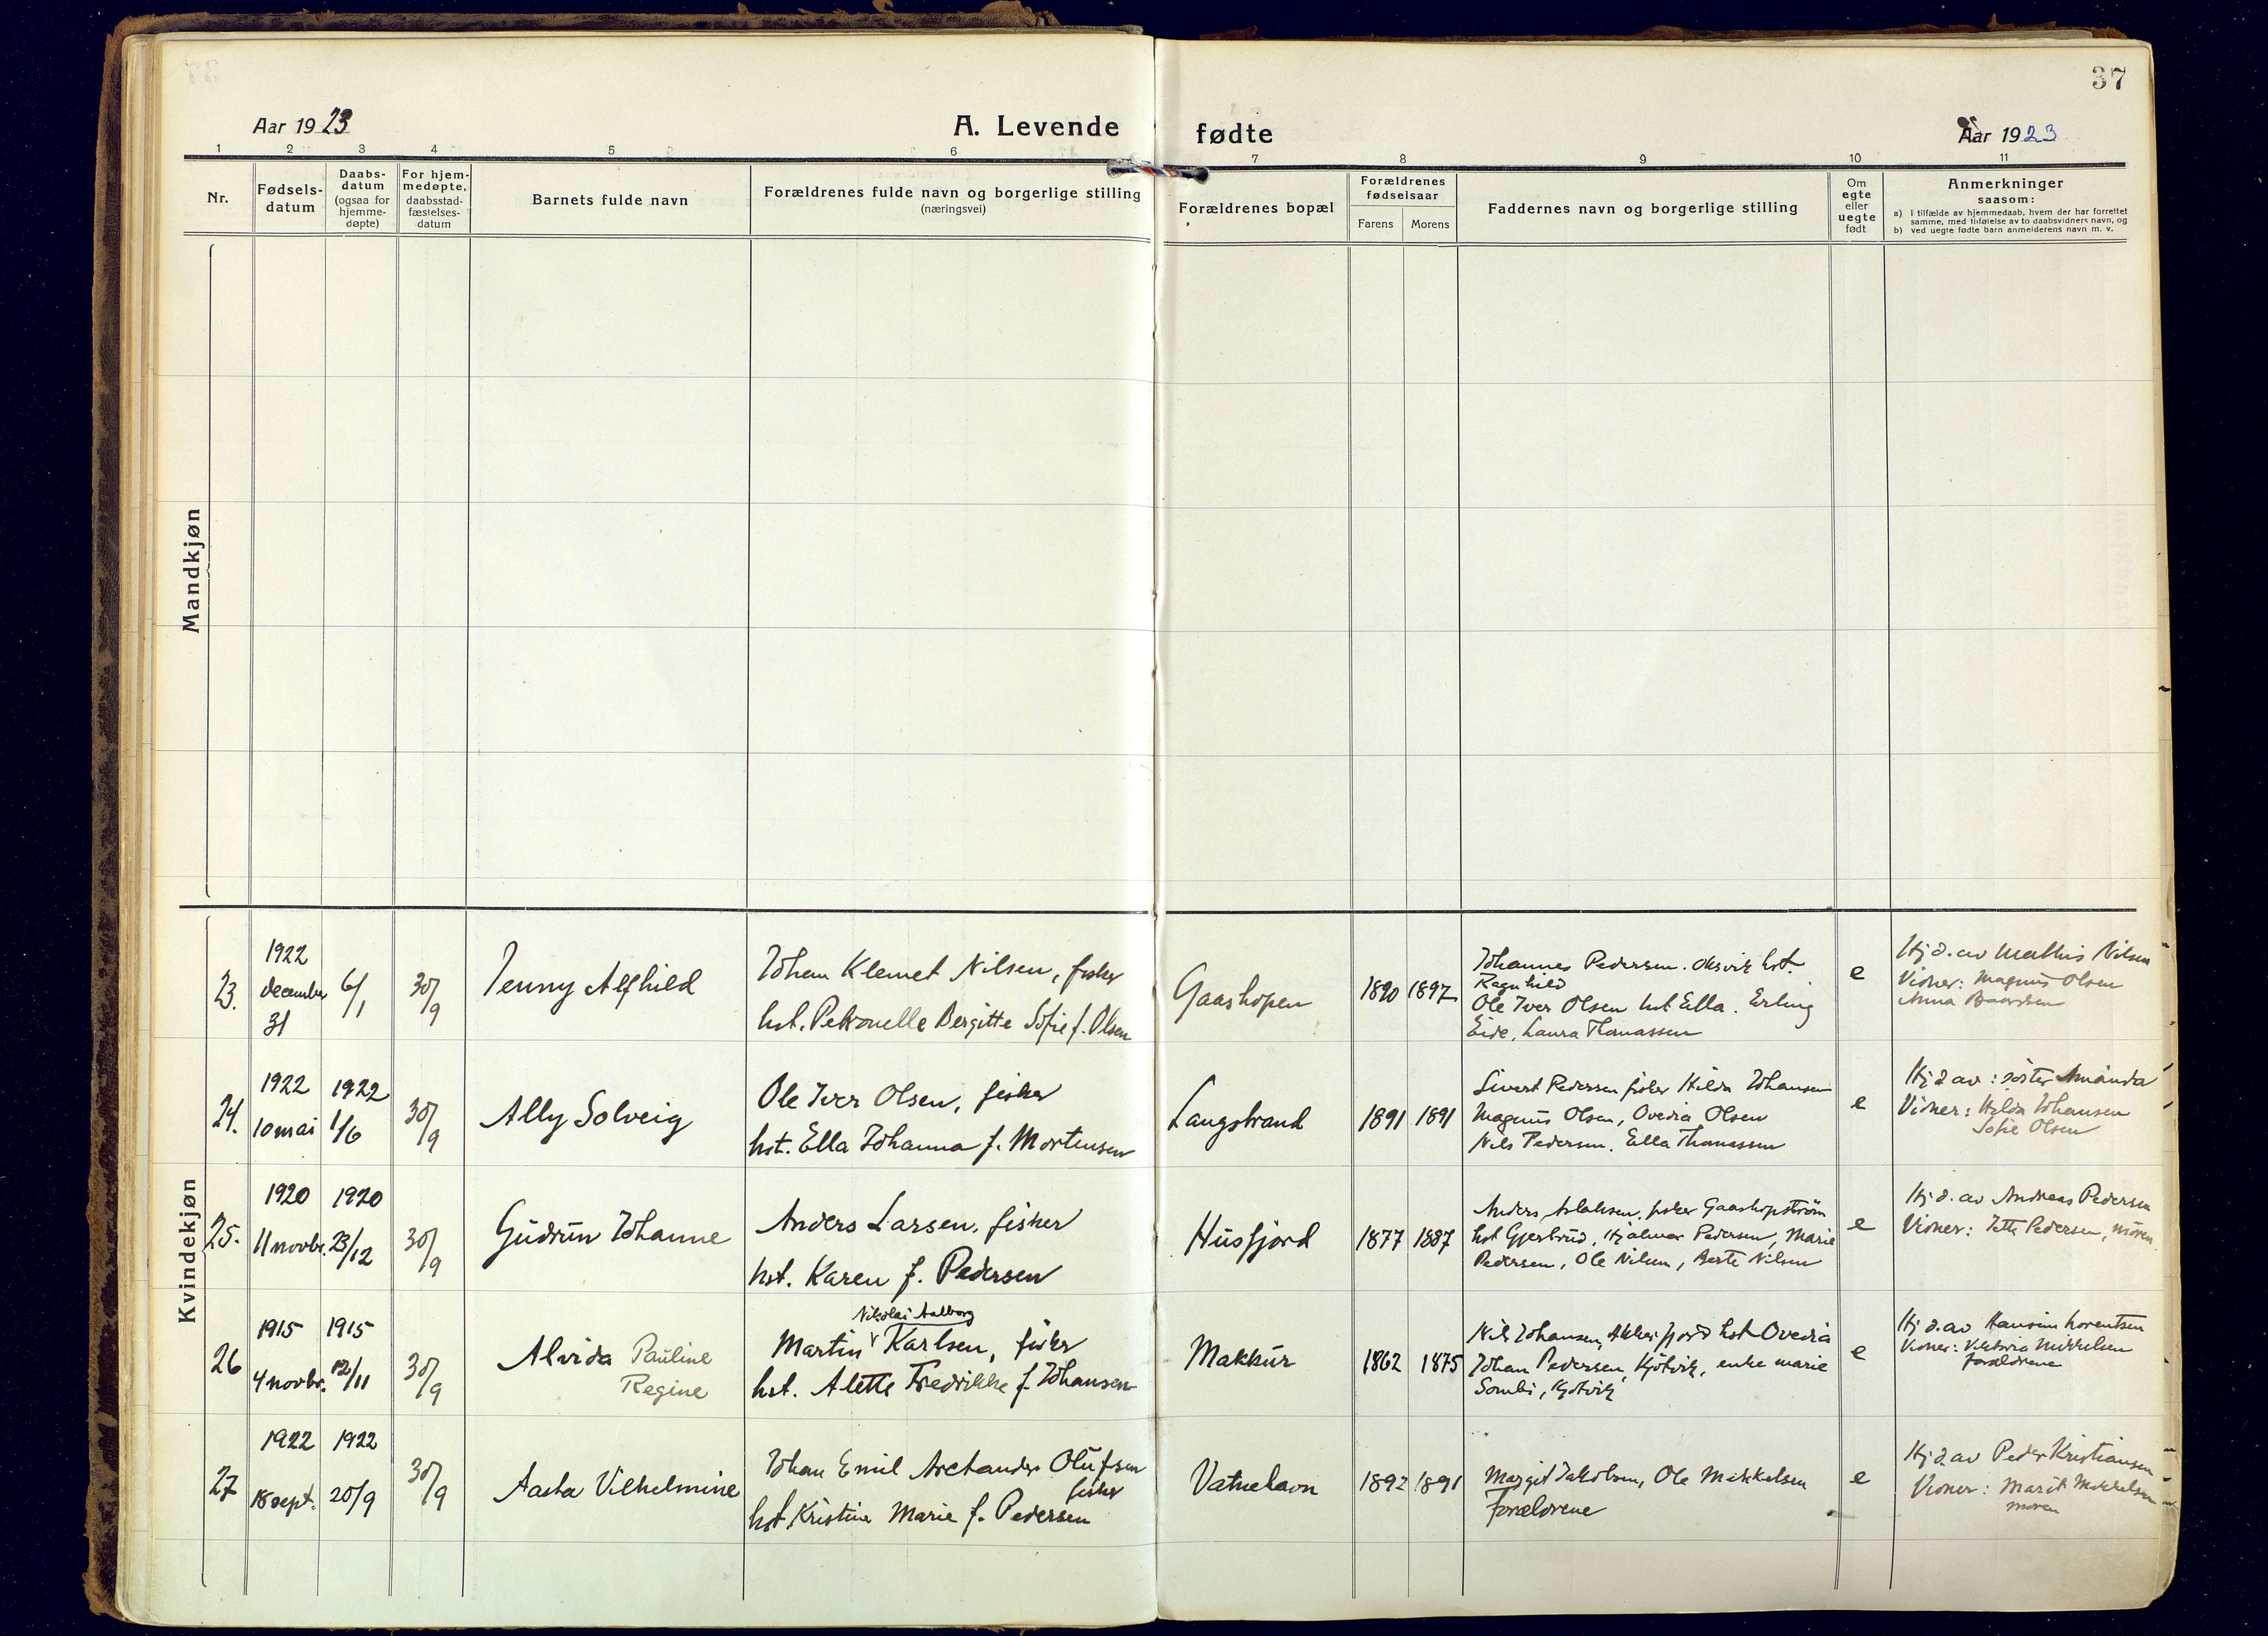 37
Aar 1923
A. Levende fødte
Aar 1923
1 2 3 4 5 6 7 8 9 10 11
Nr.
Fødsels-
datum
Daabs-
datum
(ogsaa for
hjemme-
døpte)
For hjem-
medøpte,
daabsstad-
fæstelses-
datum
Barnets fulde navn
Forældrenes fulde navn og borgerlige stilling
(næringsvei)
Forældrenes bopæl
Forældrenes
fødselsaar
Farens Morens
Faddernes navn og borgerlige stilling
Om
egte
eller
uegte
født
Anmerkninger
saasom:
a) i tilfælde av hjemmedaab, hvem der har forrettet
samme, med tilføielse av to daabsvidners navn, og
b) ved uegte fødte barn anmelderens navn m. v.
Mandkjøn
Kvindekjøn
23.
1922
december
31
6/1
30/9
Jenny Alfhild
Johan Klemet Nilsen, fisker
hst. Petronelle Bergitte Sofie f. Olsen
Gaashopen
1890 1897
Johannes Pedersen. Oksvik hst.
Ragnhild
Ole Iver Olsen hst Ella. Erling
Eide, Laura Thomassen
e
Hjd. av Mathis Nilsen
Vidner: Magnus Olsen
Anna Baardsen
24.
1922
10 mai
1922
1/6
30/9
Ally Solveig
Ole Iver Olsen, fisker
hst. Ella Johanna f. Mortensen
Langstrand
1891 1891
Sivert Pedersen fisker Hilda Johansen
Magnus Olsen, Ovedia Olsen
Nils Pedersen. Ella Thomassen
e
Hjd av: søster Amanda
Vidner: Hilda Johansen
Sofie Olsen
25.
1920
11 novbr.
1920
23/12
30/9
Gudrun Johanne
Anders Larsen, fisker
hst. Karen f. Pedersen
Husfjord
1877 1887
Anders Aslaksen, fisker Gaashopstrøm
hst Gjertrud, Hjalmar Pedersen, Marie
Pedersen, Ole Nilsen, Berte Nilsen
e
Hjd. av Andreas Pedersen
Vidner: Pedersen, moren
26
1915
4 novbr.
1915
12/11
30/9
Alvida Pauline
Regine
Nikolai Aalborg
Martin v Karlsen, fisker
hst. Alette Fredrikke f. Johansen
Makkur
1862 1875
Nils Johansen, Akkarfjord hst Ovedia
Johan Pedersen, Kjøtvik, enke marie
Sombi, Kjøtvik
e
Hjd. av Hansine Lorentsen
Vidner: Viktoria Mikkelsen
forældrene
27
1922
18 sept.
1922
20/9
30/9
Aasta Vilhelmine
Johan Emil Arctander Olufsen
fisker
hst Kristine Marie f. Pedersen
Vatnehavn
1892 1891
Margit Jakobsen, Ole Mikkelsen
Forældrene
e
Hjd av Peder Kristiansen
Vidner: Marit Mikkelsen
moren